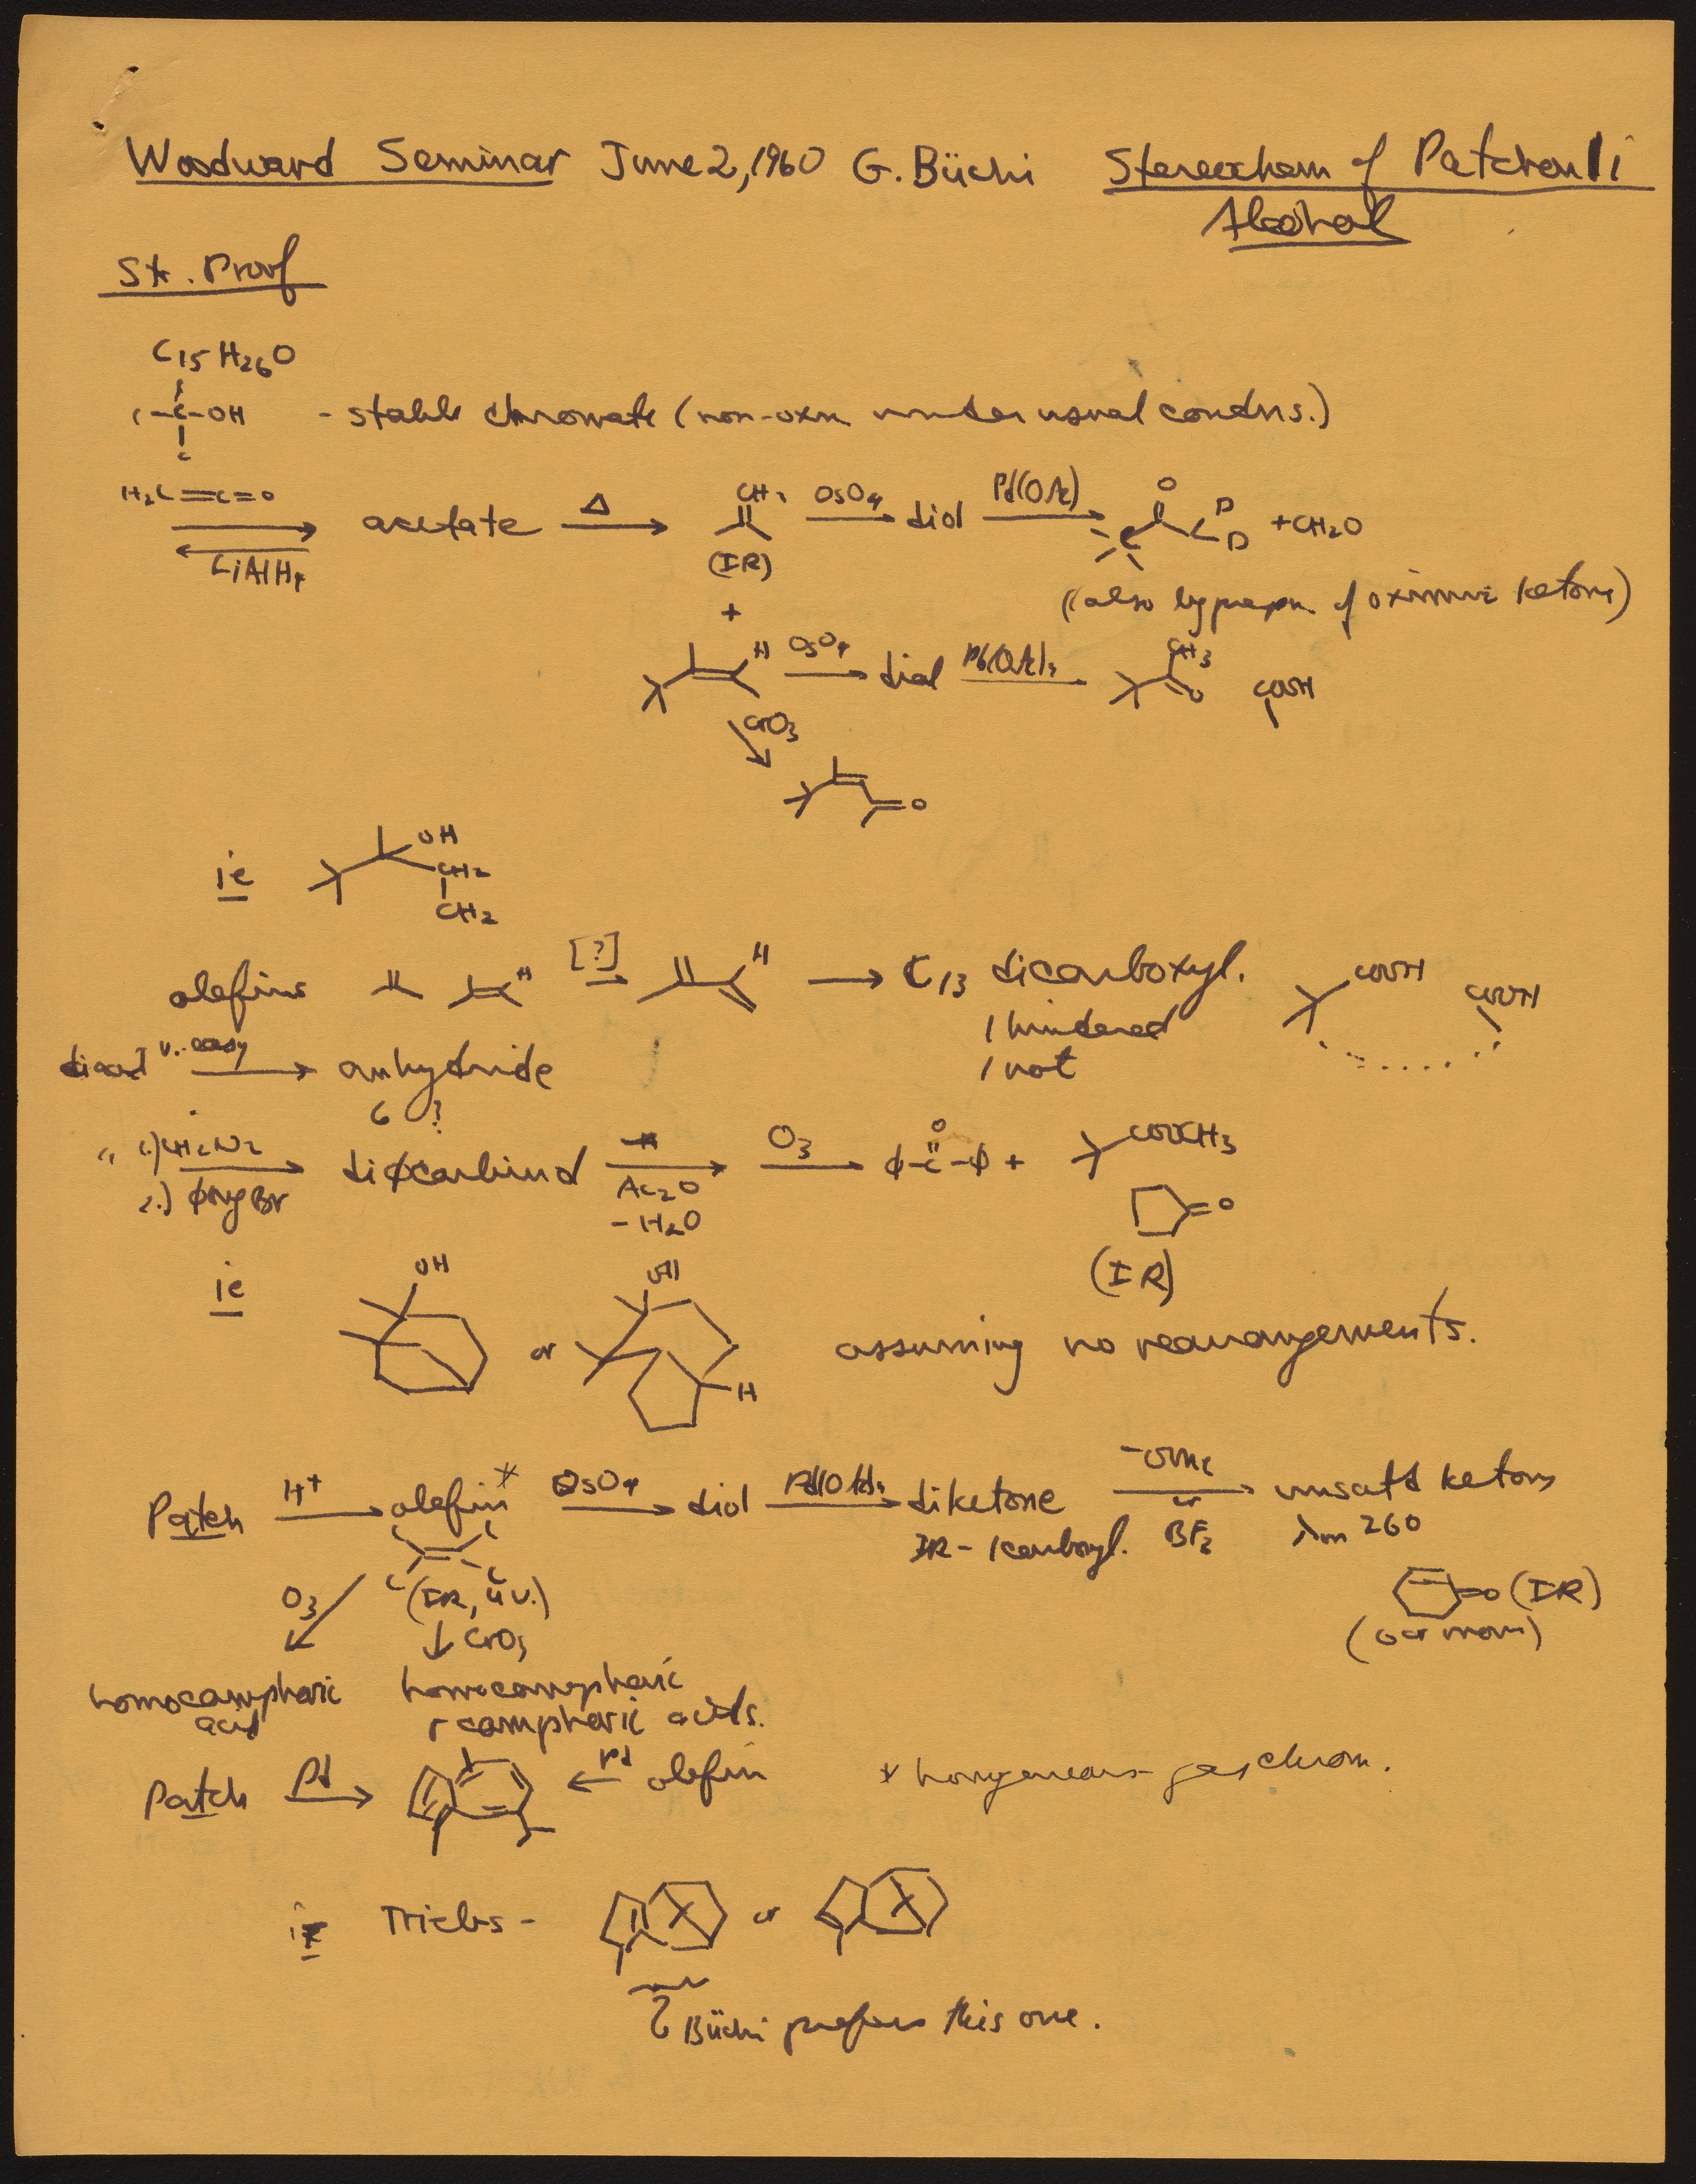 Woodward Seminar June 2, 1960 G. Büchi Stereochem of Patchouli
Alcohol
St. Proof
C15H26O
C-C-OH - stable chromate (non-oxn under usual condns.)
C
H2C=C=O
acetate Δ CH2 OsO4 diol Pb(OAc) O D D + CH2O
LiAlH4 (IR)
+ (also by prepn. of oximino ketone)
H OsO4 diol Pb(OAc)4 CH3 O COOH
CrO3
O
ie OH
CH2
CH2
olefins H [?] H C13 dicarboxyl. COOH COOH
1 hindered
1 not
diacid v. easy anhydride
6 ?
" 1.) CH2N2 diφcarbinol -H O3 φ-C-φ + COOCH3
2.) φMgBr Ac2O O
-H2O
(IR)
ie OH or OH H assuming no rearrangements.
Patch H+ olefin* OsO4 diol Pb(OAc)4 diketone -OMe or BF3 unsatd ketone
IR - 1 carbonyl. λm 260
O3 (IR, uv.) =O (IR)
CrO3 (6 or more)
homocamphoric acid
homocamphoric
+ camphoric acids.
Patch Pd Pd olefin * homogeneous - gas chrom.
ie Triebs - or
Büchi prefers this one.